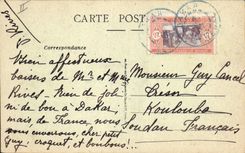 CARTE POST
Correspondance
Bien affectueux
baisers de Mr et Mme
Rives - Rien de joli
ni de bon à Dakar,
mais de France, nous
vous enverrons, cher petit
Guy, croquet, et bonbons!..
Monsieur Guy Cancel
Koulouba
Soudan Français
Rives